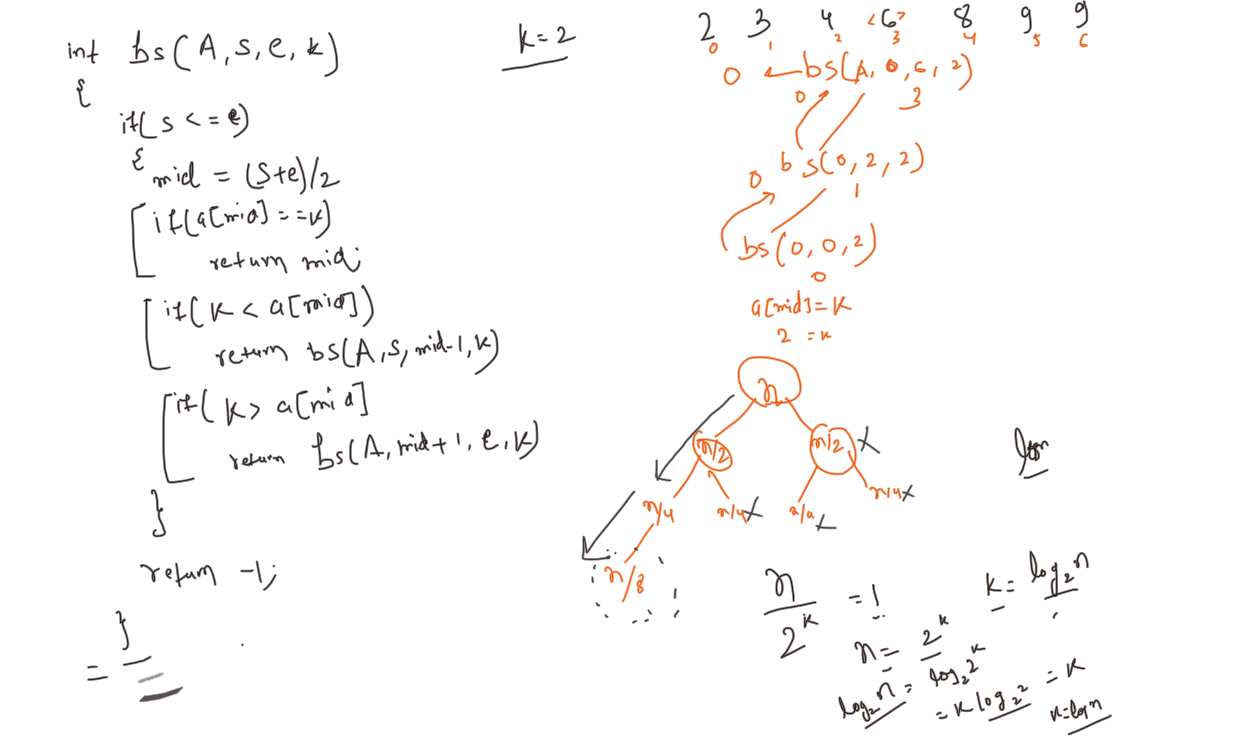 int bs(A, s, e, k)
{
if(s <= e)
{
mid = (s+e)/2
if(a[mid] == k)
return mid;
if(k < a[mid])
return bs(A, s, mid-1, k)
if(k > a[mid]
return bs(A, mid+1, e, k)
}
return -1;
}
=
k=2
2 3 4 <6> 8 9 9
0 1 2 3 4 5 6
0 ← bs(A, 0, 6, 2)
0 3
bs(0, 2, 2)
0 1
bs(0, 0, 2)
0
a[mid] = k
2 = k
n
n/2 n/2 x
n/4 n/4 x n/4 x n/4 x
n/8
logn
n/2^k = 1
n = 2^k
log₂n = log₂2^k
= k log₂2 = k
k = logn
k = log₂n